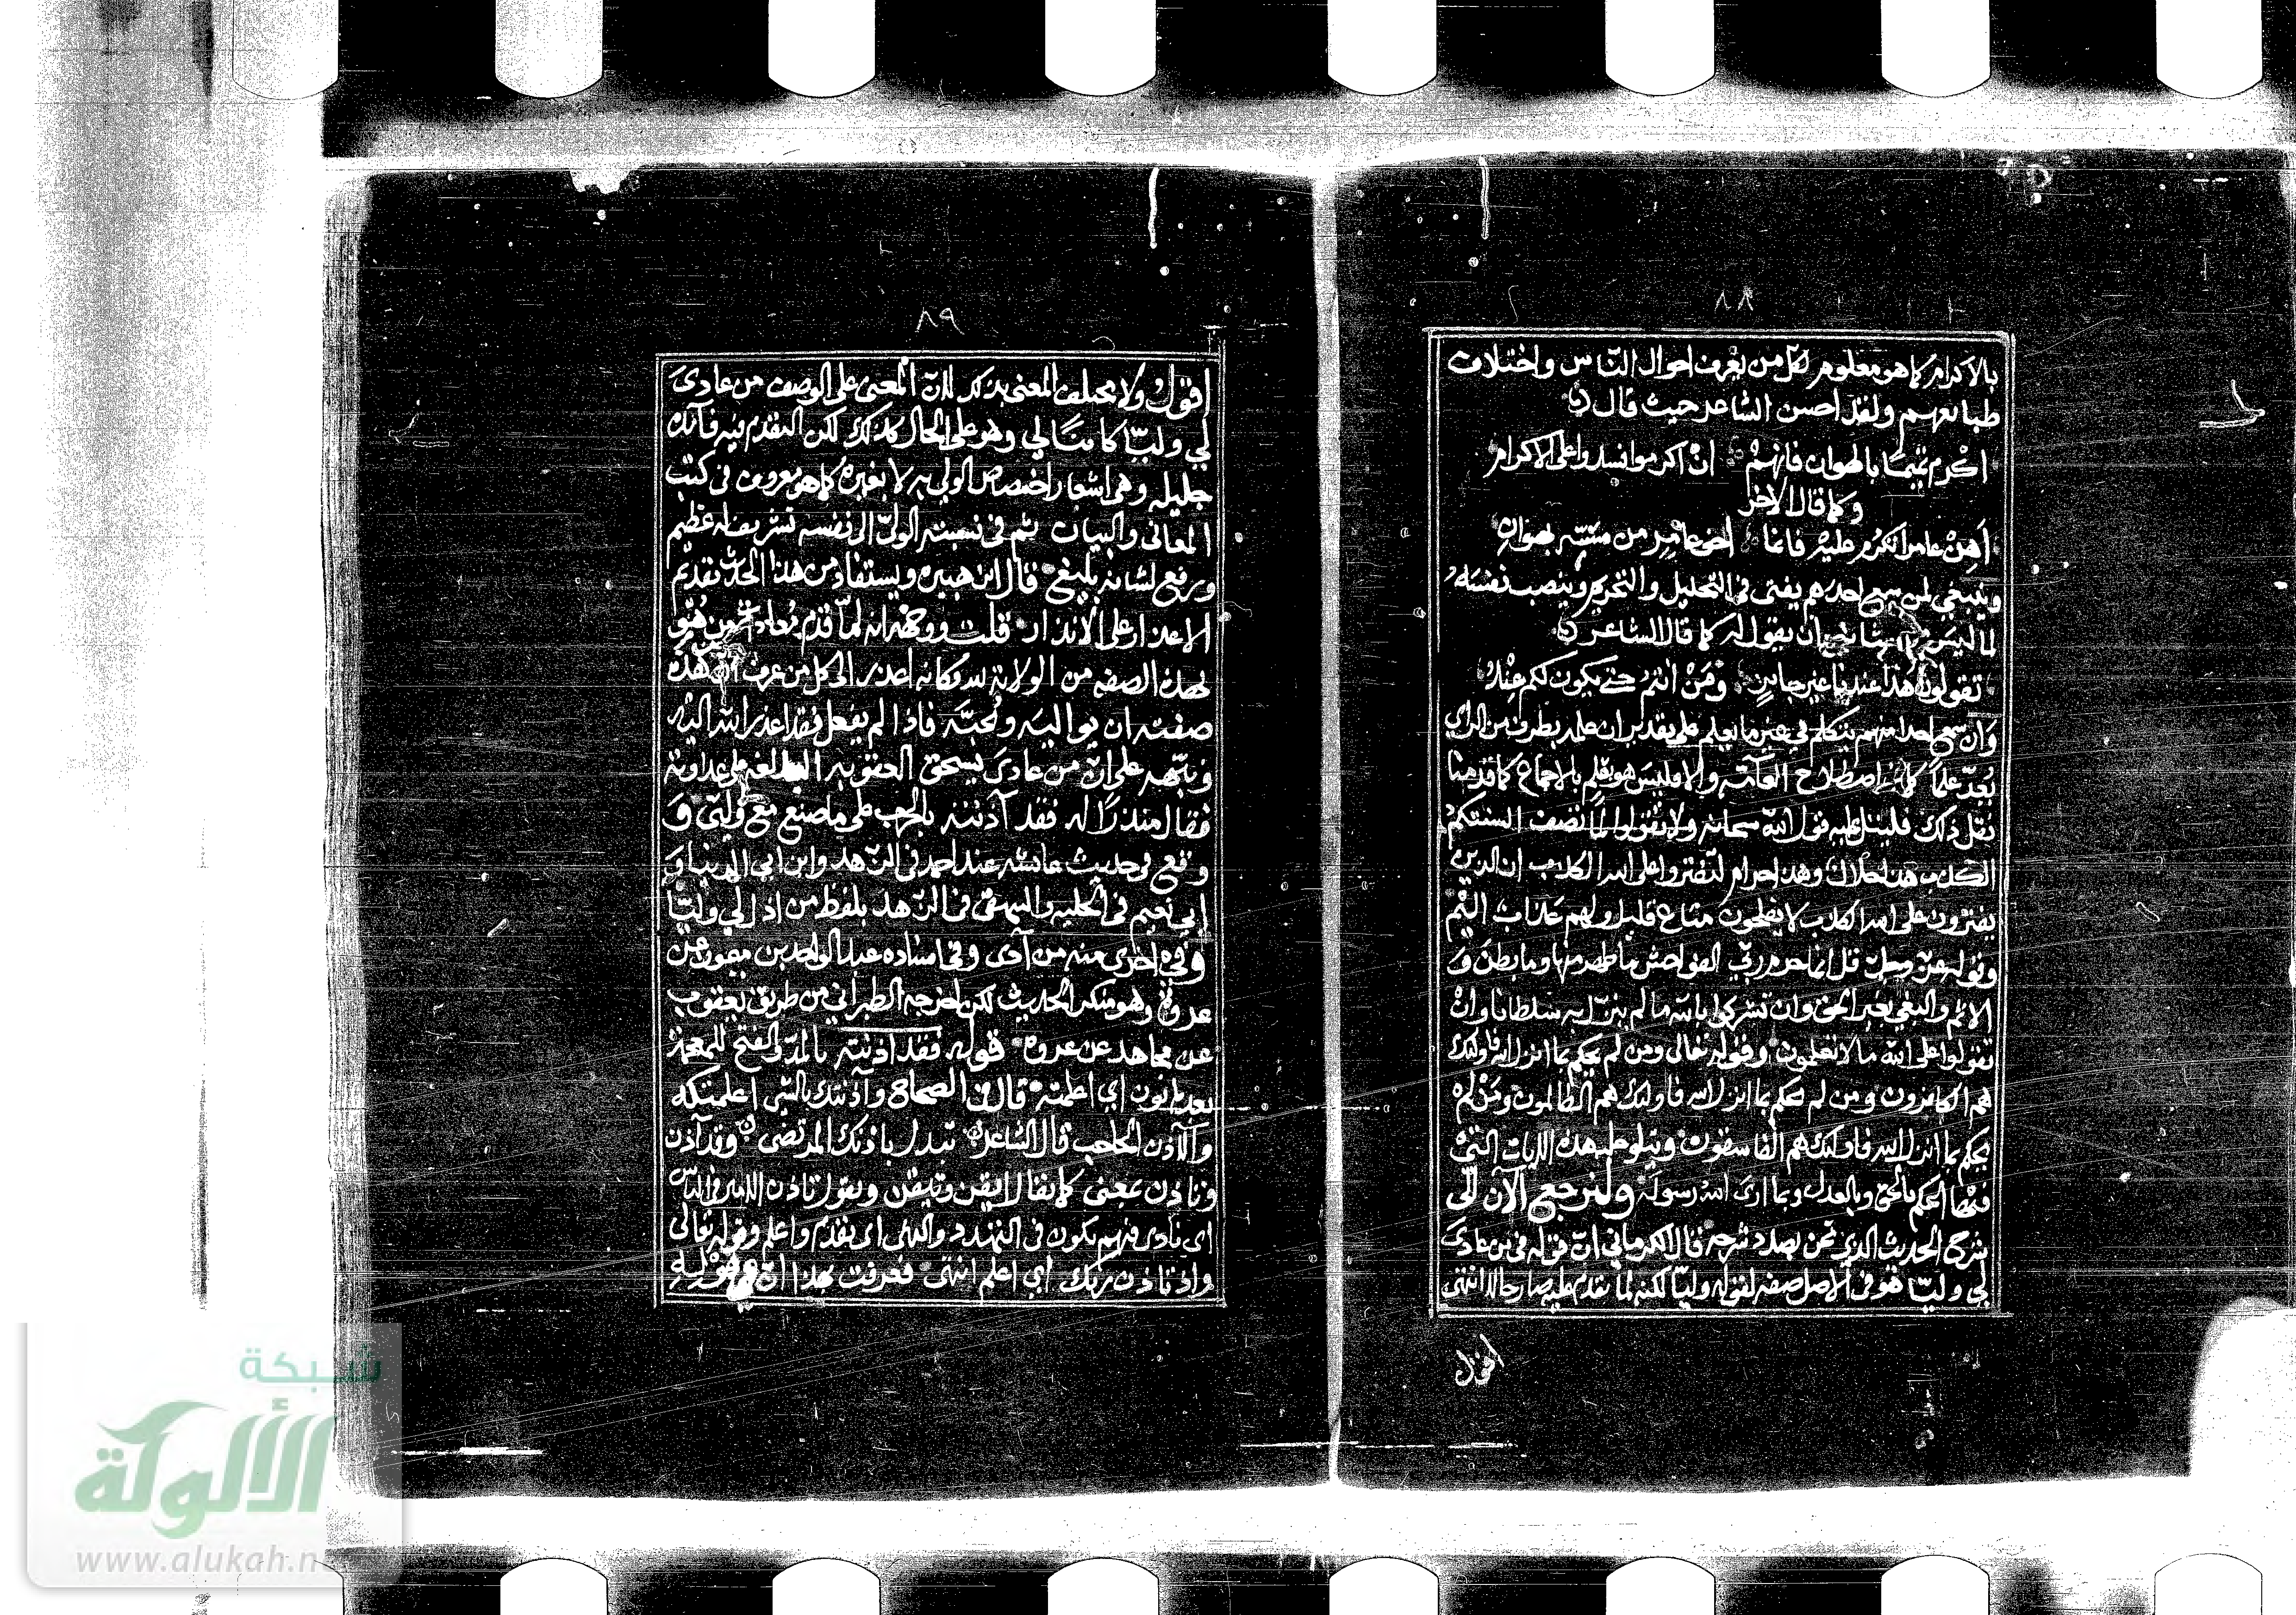 ٨٨
بالاكرام كما هو معلوم لكل من يعرف احوال الناس واختلاف
طبائعهم ولقد احسن الشاعر حيث قال
اكرم تميمًا بالهوان فانهم ان اكرموا فسدوا على الاكرام
وكما قال الاخر
اهن عامرا تكرم عليه فانما اخو عامر من مسه بهوان
وينبغي لمن سمع احدهم يفتى فى التحليل والتحريم وينصب نفسه
لما ليس ان يقول له كما قال الشاعر
تقولون هذا عندنا غير جايز ومن انتم حتى يكون لكم عند
وان سمع احدا منهم يتكلم في غير ما يعلم على تقدير ان علمه بطرف من الراي
يعد علماً اصطلاح العامة والا فليس هو بعلم بالاجماع كما قدمنا
نقل ذلك فليتل عليه قول الله سبحانه ولا تقولوا لما تصف السنتكم
الكذب هذا حلال وهذا حرام لتفتروا على الله الكذب ان الذين
يفترون على الله الكذب لا يفلحون متاع قليل ولهم عذاب اليم
وقوله عز وجل قل انما حرم ربي الفواحش ما ظهر منها وما بطن و
الاثم والبغي بغير الحق وان تشركوا بالله ما لم ينزل به سلطانا وان
تقولوا على الله ما لا تعلمون وقوله تعالى ومن لم يحكم بما انزل الله فاولئك
هم الكافرون ومن لم يحكم بما انزل الله فاولئك هم الظالمون ومن لم
يحكم بما انزل الله فاولئك هم الفاسقون ويتلو عليه هذه الايات التي
فيها الحكم بالحق وبالعدل وبما ارى الله رسوله ولنرجع الآن الى
شرح الحديث الذي نحن بصدد شرحه قال الكرماني ان قوله في من عادى
لي وليا هو في الاصل صفه لقوله وليا لكنه لما تقدم عليه صار حالا انتهى
اقول
٨٩
اقول ولا يختلف المعنى بذلك لان المعنى على الوصف من عادى
لي وليًا كائنا لي وهو على الحال كذلك لكن التقدم فيه فائدة
جليله وهي اشعار اختصاص الولي به لا بغيره كما هو معروف فى كتب
المعانى والبيان ثم فى نسبته الولي الى نفسه تشريف له عظيم
ورفع لشانه بليغ قال ابن هبيره ويستفاد من هذا الحديث تقديم
الاعذار على الانذار قلت ووجهه انه لما قدم معاداة من هو
بهذه الصفه من الولاية لله فكانه اعذر الى كل من عرف ان هذه
صفته ان يواليه ويحبه فاذا لم يفعل فقد اعذر الله اليه
ونبهه على ان من عادى يستحق العقوبه على عداوته
فقال منذرًا له فقد آذنته بالحرب على ما صنع مع وليي و
وقع في حديث عائشه عند احمد فى الزهد وابن ابي الدنيا و
ابي نعيم فى الحليه والبيهقى فى الزهد بلفظ من اذل لي وليا
وفي اخرى منه من آذى وفى اسناده عبد الواحد بن ميمون عن
عروة وهو منكر الحديث لكن اخرجه الطبراني من طريق يعقوب
عن مجاهد عن عروه قوله فقد آذنته بالمد والفتح للمعجمة
بعدها نون اي اعلمته قال في الصحاح وآذنتك بالشي اعلمتكه
والآذن الحاجب قال الشاعر تبدل باذنك المرتضى وقد آذن
وتاذن بمعنى كما يقال ايقن وتيقن وتقول تاذن الامير فى الناس
اي نادى فيهم يكون فى التهدد والنهى اى تقدم واعلم وقوله تعالى
واذ تاذن ربك اي اعلم انتهى فعرفت بهذا ان قوله
شبكة
الألوكة
www.alukah.n